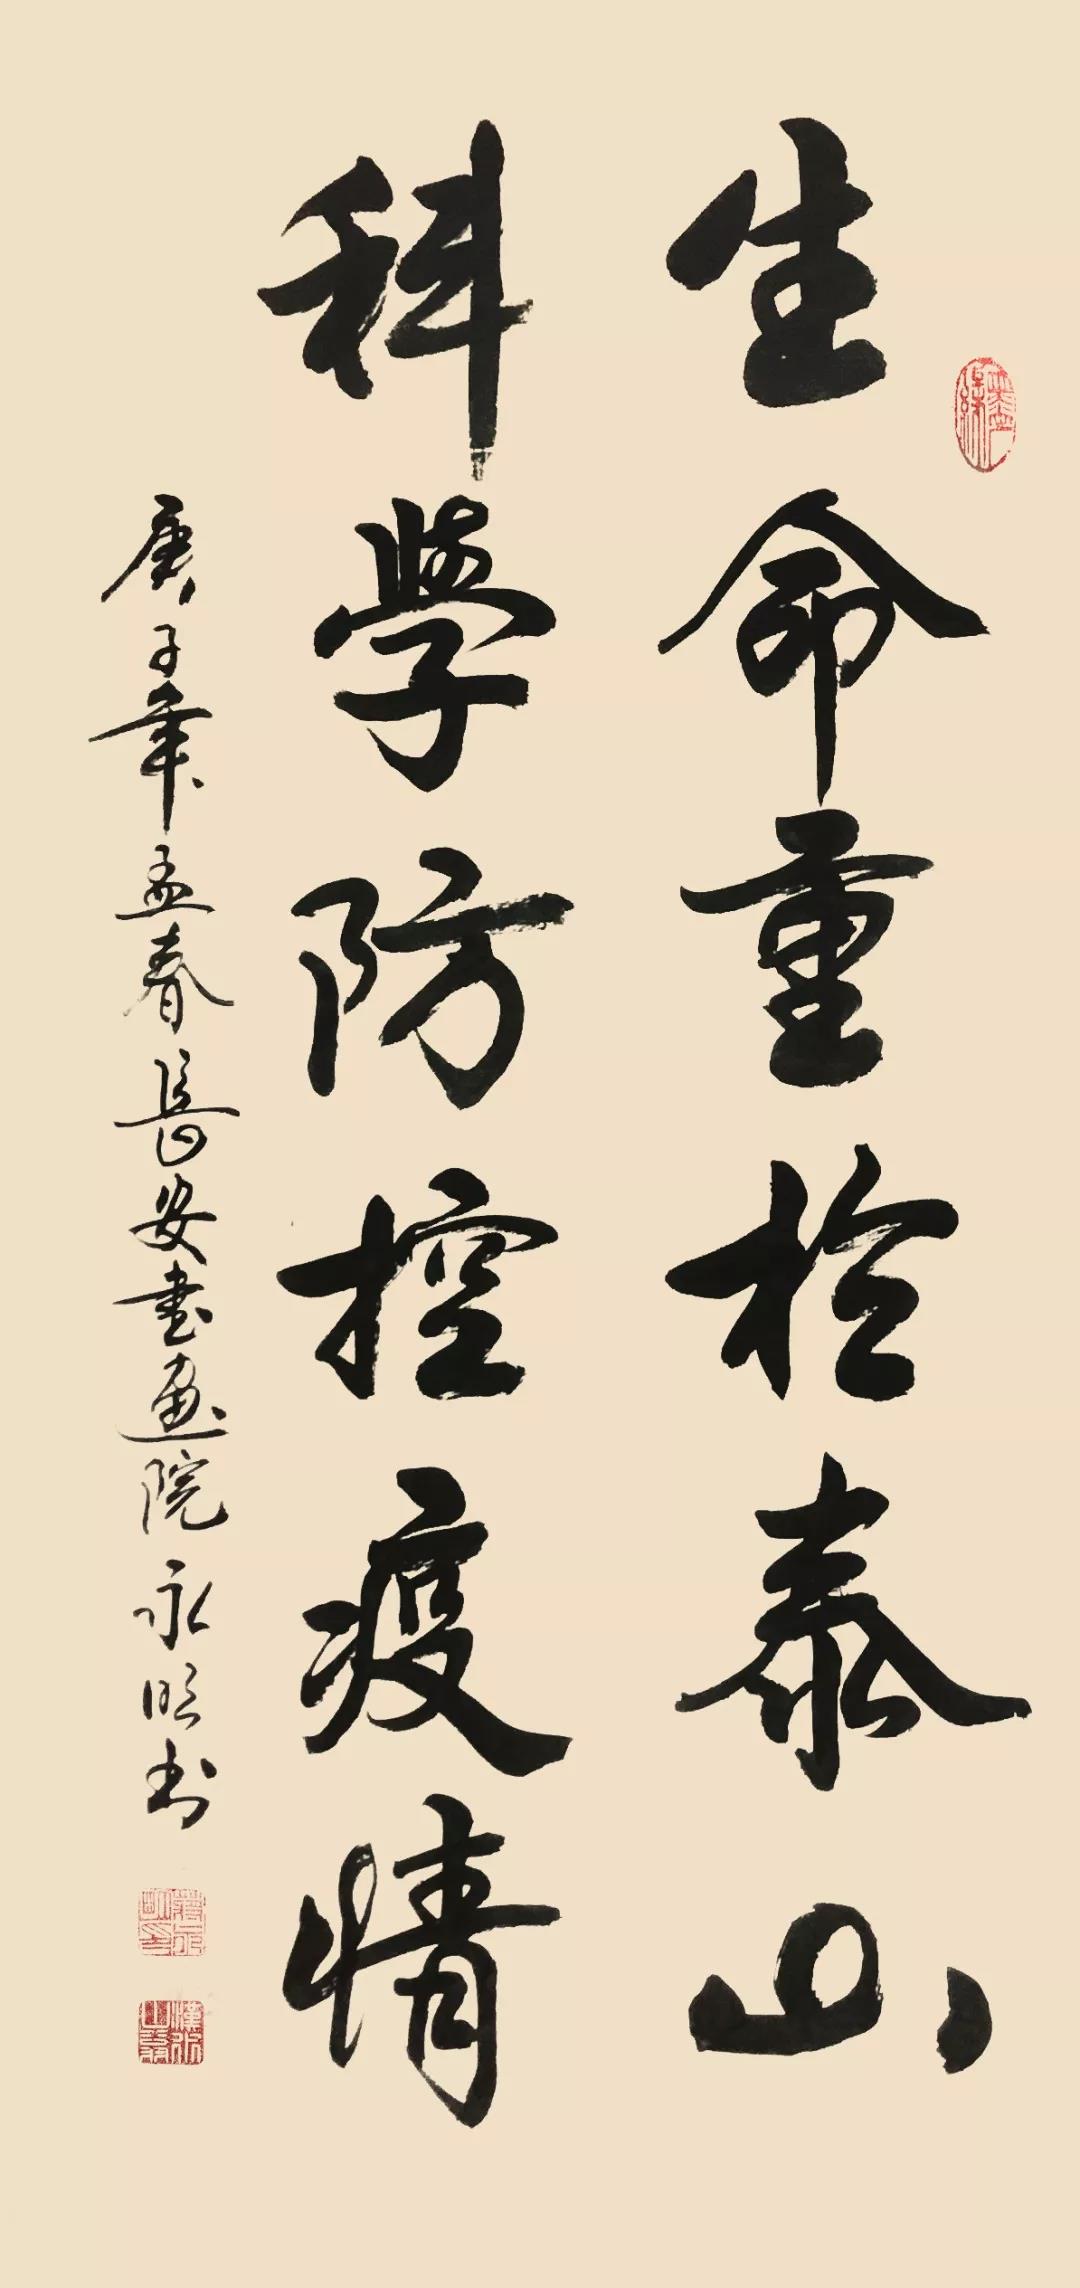 生命重於泰山
科學防控疫情
庚子年孟春長安書画院永明书